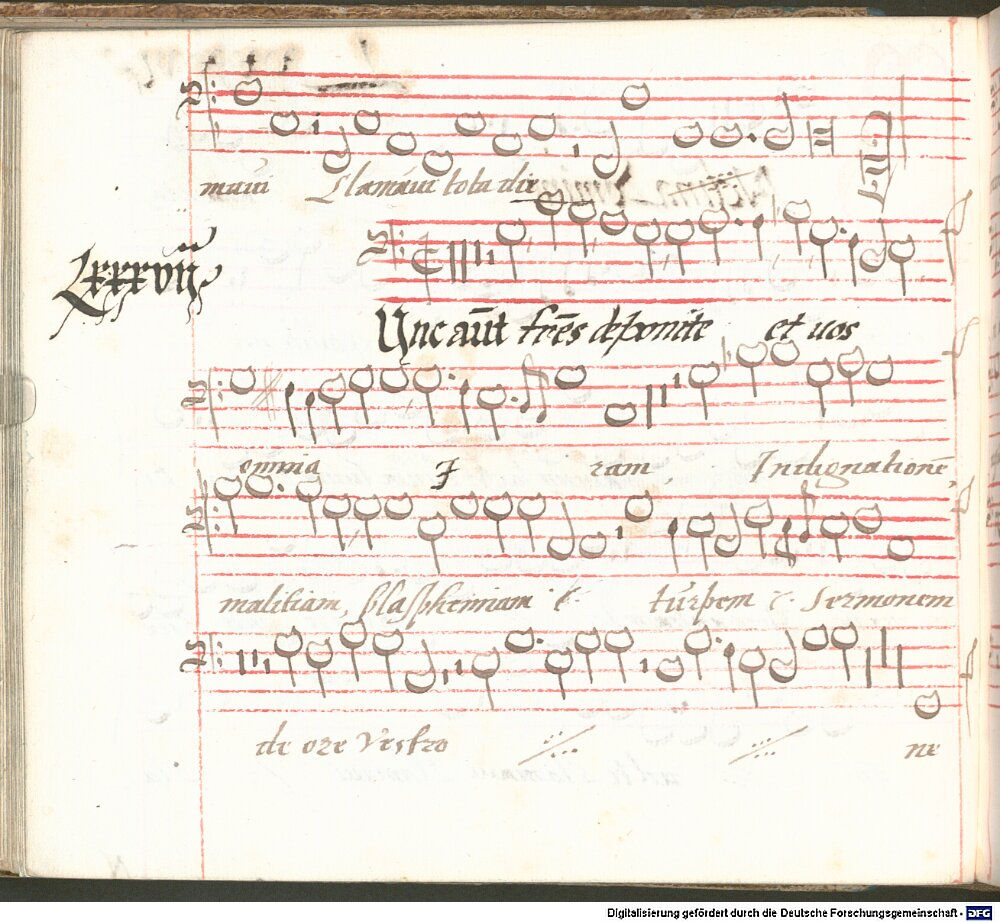 maui Clamaui tota die
Lxxxvij
Unc aūt frēs deponite et uos
omnia I ram Indignationē
malitiam, blasphemiam & turpem & sermonem
de ore Vestro ne
Digitalisierung gefördert durch die Deutsche Forschungsgemeinschaft - DFG